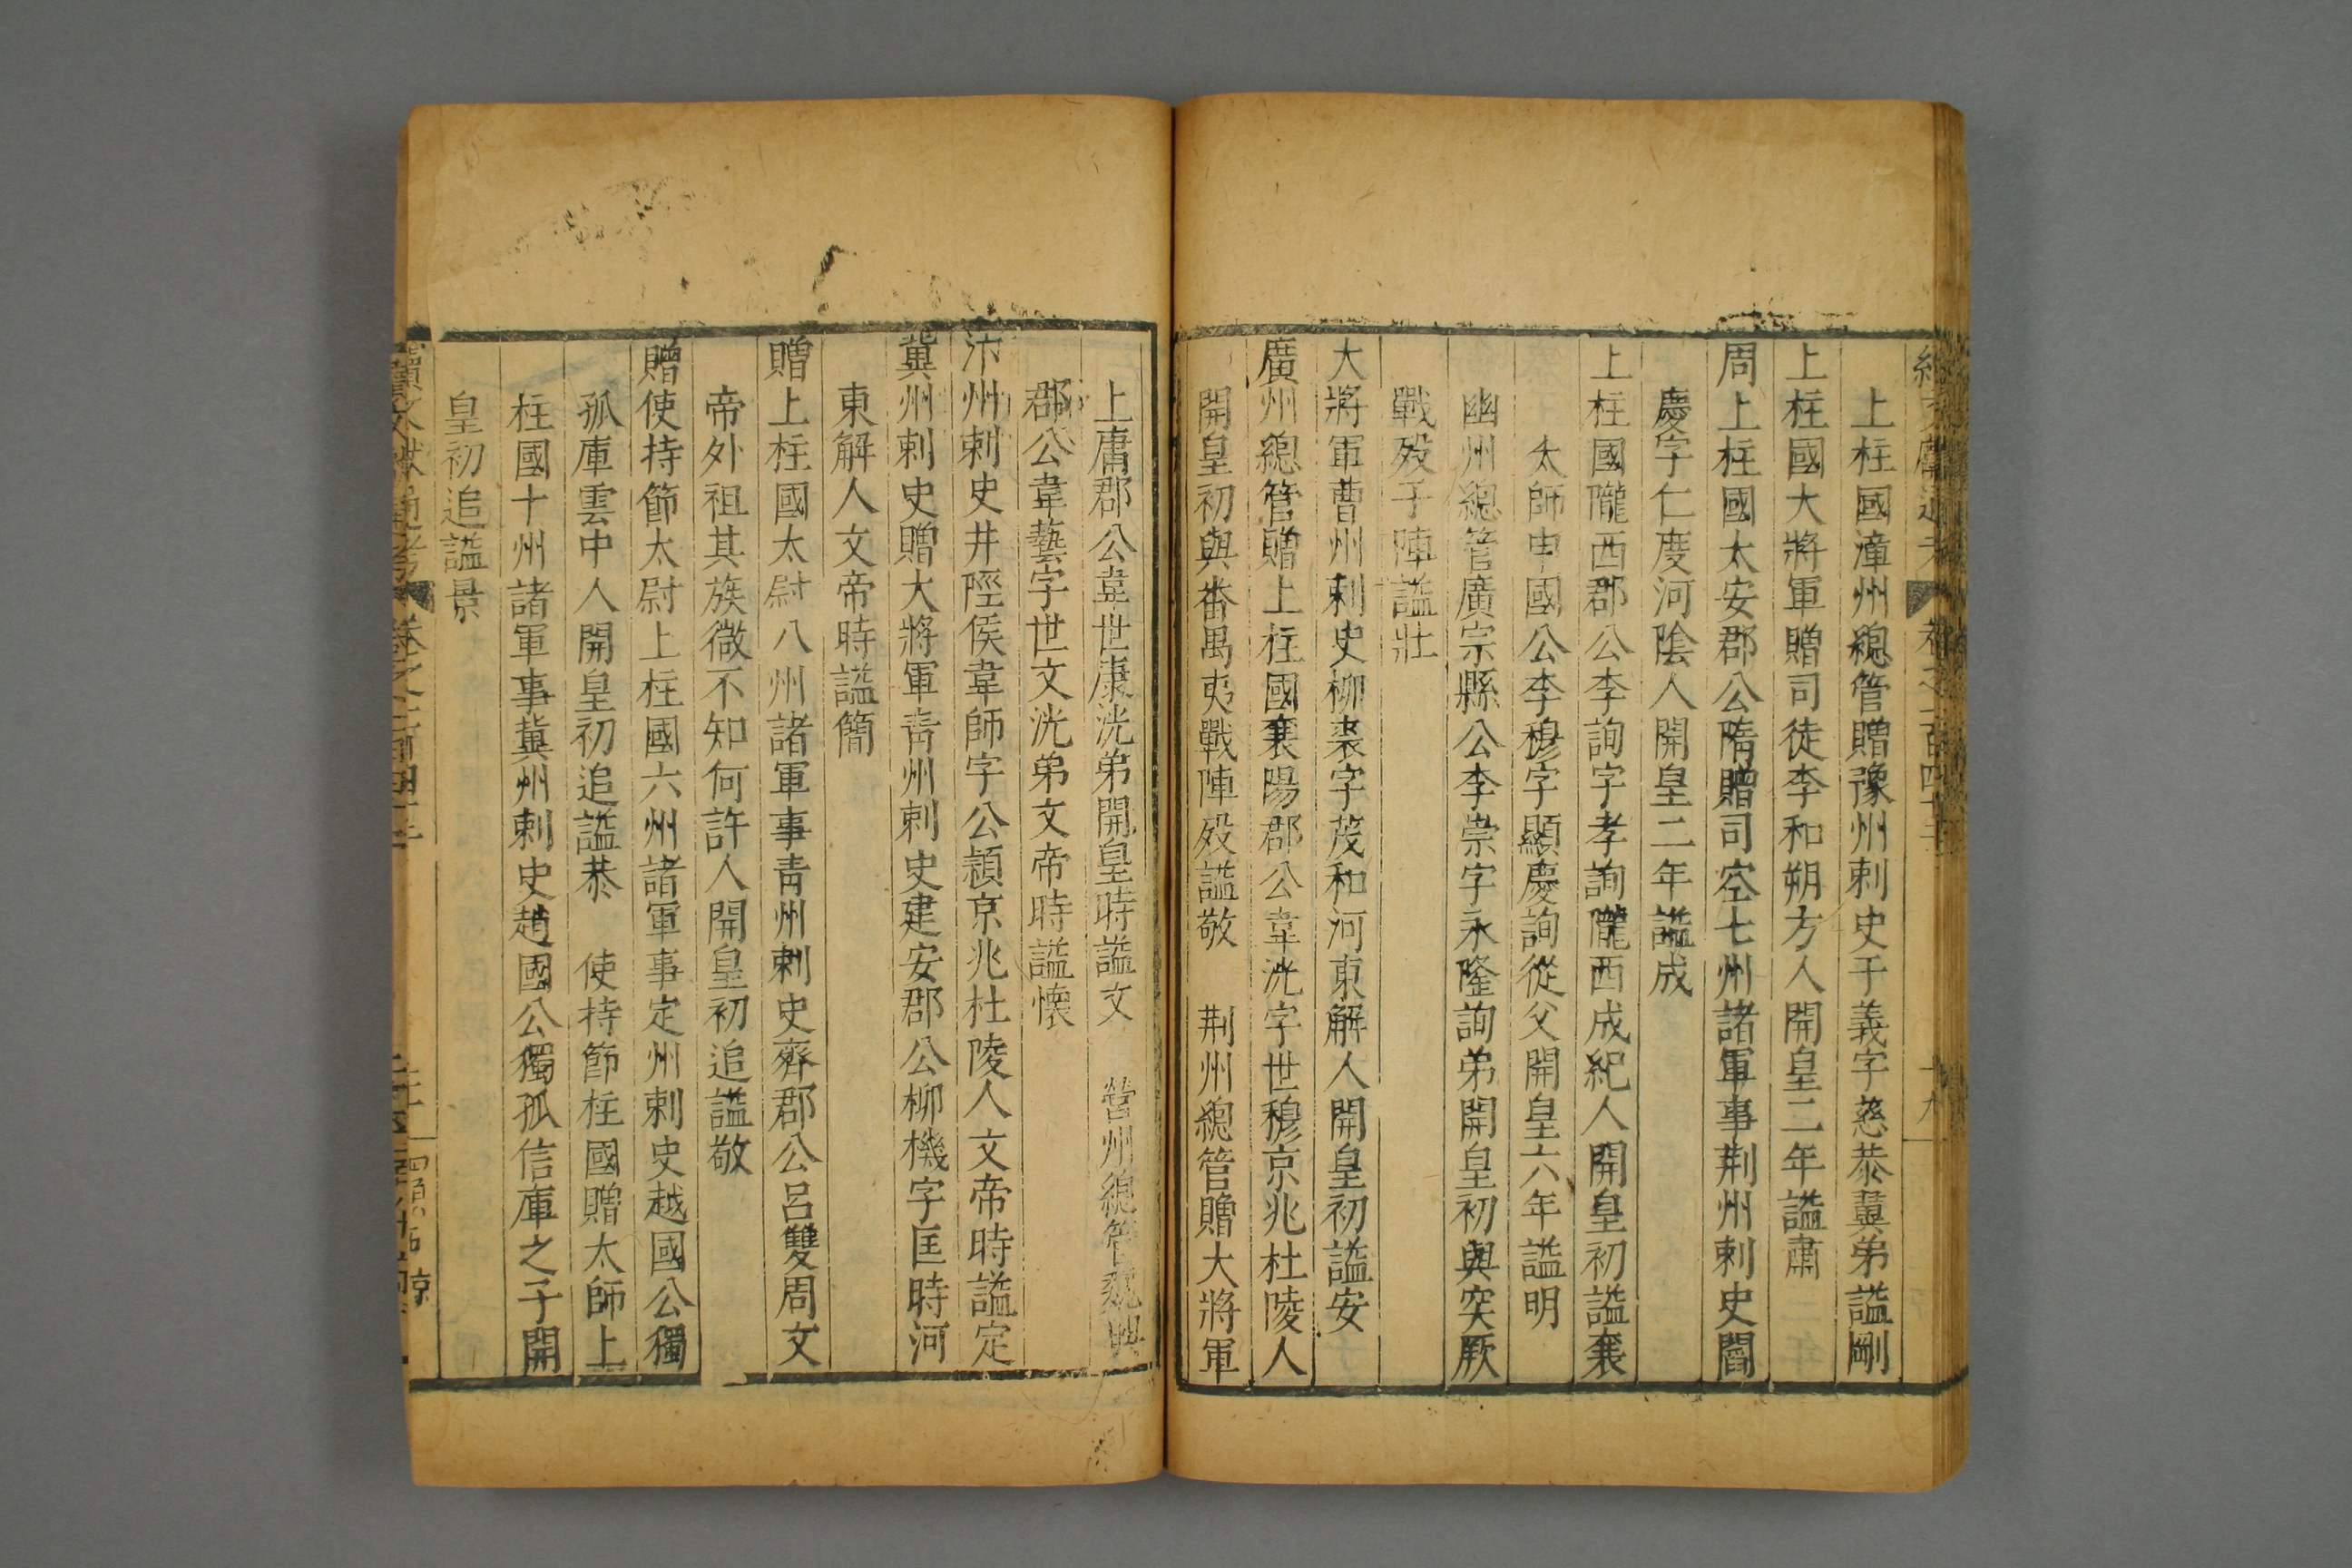 上柱國潼州總管贈豫州刺史于義字慈恭翼弟謚剛
上柱國大將軍贈司徒李和朔方人開皇二年謚肅
周上柱國太安郡公隋贈司空七州諸軍事荆州刺史閻
慶字仁慶河陰人開皇二年謚成
上柱國隴西郡公李詢字孝詢隴西成紀人開皇初謚襄
太師申國公李穆字顯慶詢從父開皇六年謚明
幽州總管廣宗縣公李崇字永隆詢弟開皇初與突厥
戰歿于陣謚壯
大將軍曹州刺史柳裘字茂和河東解人開皇初謚安
廣州總管贈上柱國襄陽郡公韋洸字世穆京兆杜陵人
開皇初與番禺夷戰陣歿謚敬 荆州總管贈大將軍
上庸郡公韋世康洸弟開皇時謚文 營州總管魏興
郡公韋藝字世文洸弟文帝時謚懷
汴州刺史井陘侯韋師字公頴京兆杜陵人文帝時謚定
冀州刺史贈大將軍青州刺史建安郡公柳機字匡時河
東解人文帝時謚簡
贈上柱國太尉八州諸軍事青州刺史齊郡公呂雙周文
帝外祖其族微不知何許人開皇初追謚敬
贈使持節太尉上柱國六州諸軍事定州刺史越國公獨
孤庫雲中人開皇初追謚恭 使持節柱國贈太師上
柱國十州諸軍事冀州刺史趙國公獨孤信庫之子開
皇初追謚景
續文獻通考 卷之一百四十